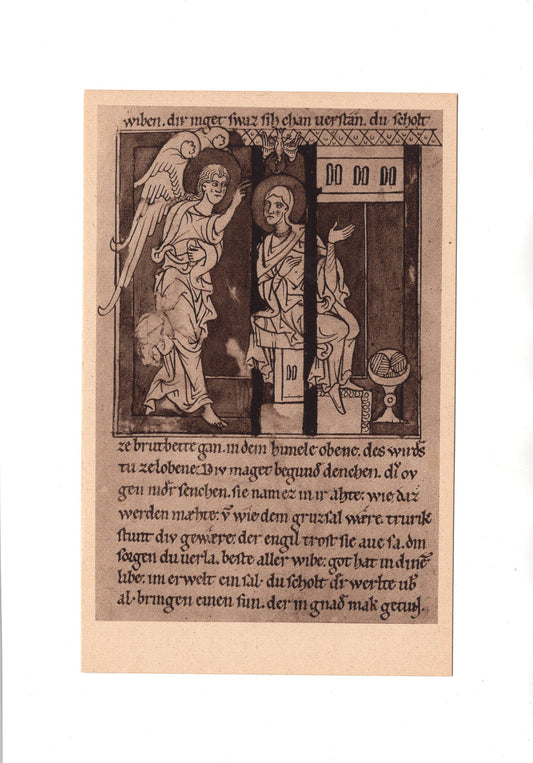 wiben. dir niget swaz sih chan verstan. du scholt
ze brutbette gan. in dem himele obene. des wirds
tu ze lobene: Div maget begund denchen. di ov
gen nidr senchen. sie nam ez in ir ahte: wie daz
werden mæhte: v̄ wie dem gruzsal wære. trurik
stunt div gewære: der engil trost sie aue sa. din
soꝛgen du verla. beste aller wibe: got hat in dinē
libe: im erwelt ein sal. du scholt dr̄ werlte vb̄
al. bringen einen sun. der in gnad mak getun.